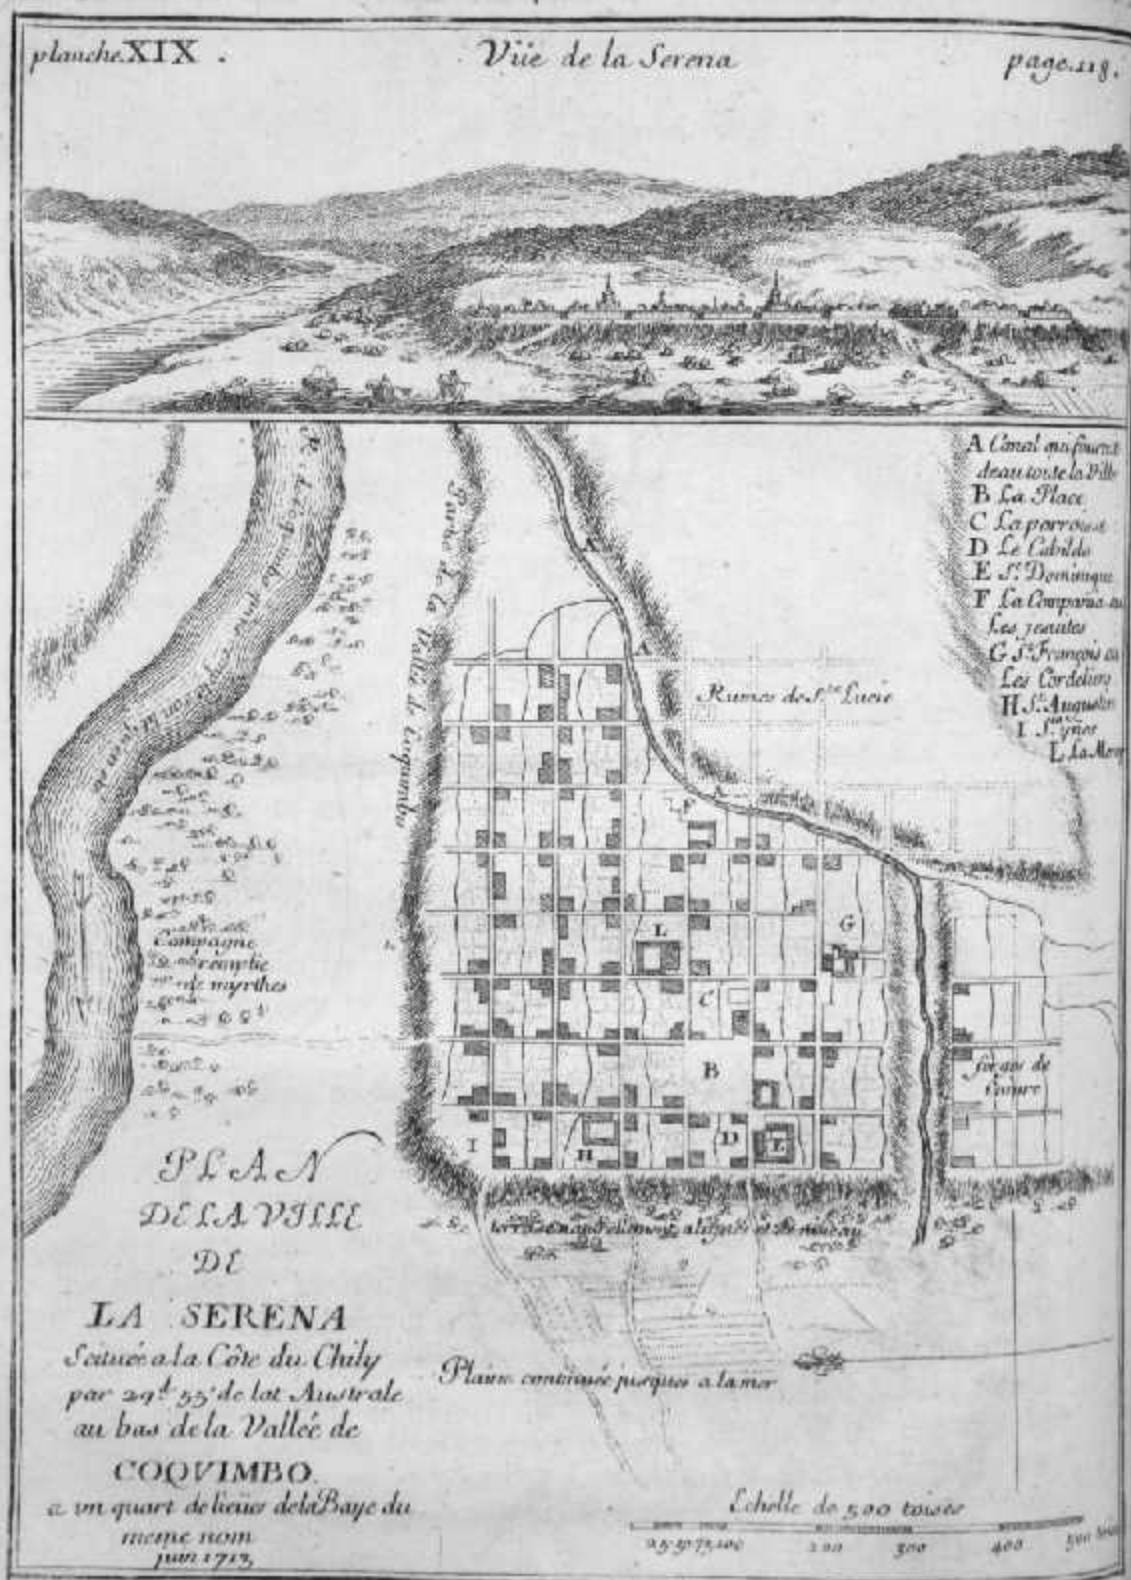 planche. XIX .
Vüe de la Serena
page. 118.
A Canal qui fournit
deau toute la Ville
B La Place
C La parroisse
D Le Cabildo
E St. Dominique
F La Compania ou
Les jesuites
G St. François ou
Les Cordeliers
H St. Augustin
I Sta. ynes
L La Mercy
R. de Coquimbo
Partie de la Vallée de Coquimbo
A
A
A
Ruines de Ste. Lucie
F
L
G
C
B
D
E
H
I
Campagne
remplie
de myrthes
forges de
Cuivre
terrasse naturellement alignée et de niveau
Plaine continuée jusques a la mer
PLAN
DE LA VILLE
DE
LA SERENA
Scituée a la Côte du Chily
par 29d 55' de lat Australe
au bas de la Vallée de
COQVIMBO.
a un quart de lieües de la Baye du
meme nom
juin 1713
Echelle de 500 toises
25.50.75.100 200 300 400 500 toises